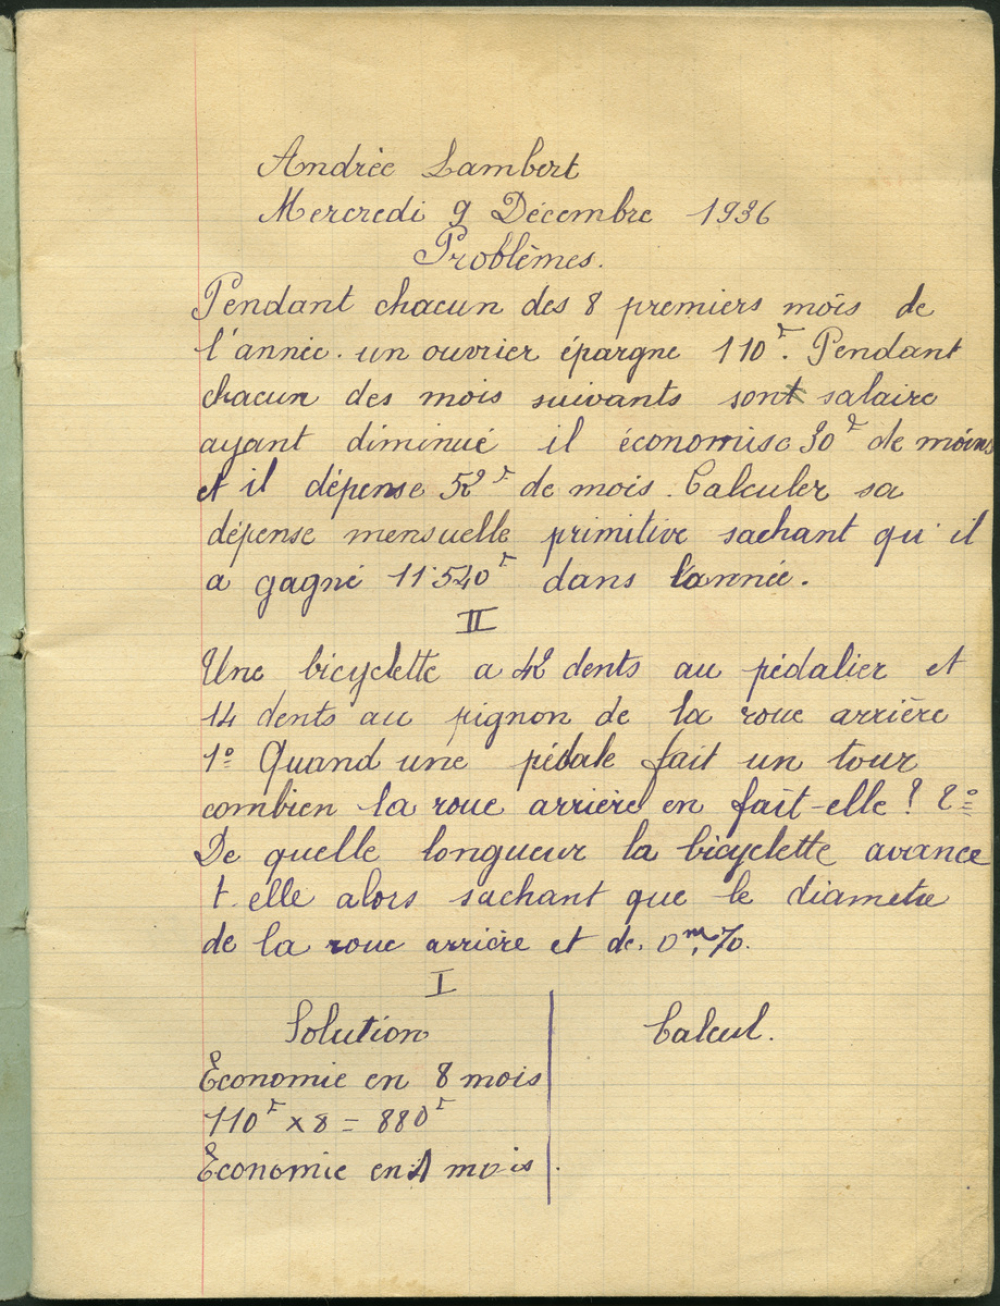 Andrée Lambert
Mercredi 9 Décembre 1936
Problèmes.
Pendant chacun des 8 premiers mois de
l'année. un ouvrier épargne 110F. Pendant
chacun des mois suivants sont salaire
ayant diminué il économise 30F de moins
et il dépense 52F de mois. Calculer sa
dépense mensuelle primitive sachant qu'il
a gagné 11540F dans l'année.
II
Une bicyclette a 42 dents au pédalier et
14 dents au pignon de la roue arrière
1º Quand une pédale fait un tour
combien la roue arrière en fait-elle? 2º
De quelle longueur la bicyclette avance
t. elle alors sachant que le diametre
de la roue arrière et de. 0m,70.
I
Solution Calcul.
Economie en 8 mois
110F x 8 = 880F
Economie en 1 mois.